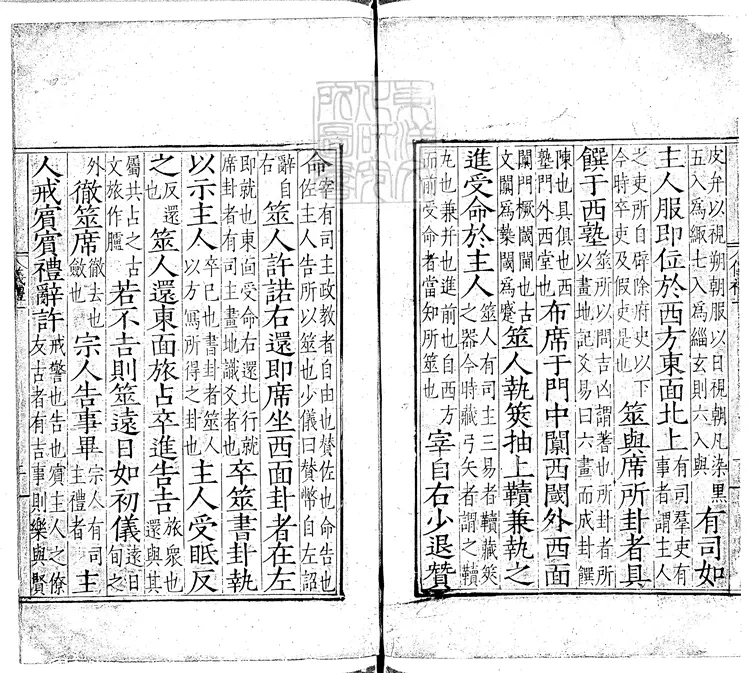 皮弁以視朔朝服以日視朝凡染黑五入為緅七入為緇玄則六入與有司如
主人服即位於西方東面北上有司羣吏有事者謂主人
之吏所自辟除府史以下今時卒吏及假吏是也筮與席所卦者具
饌于西塾筮所以問吉凶謂蓍也所卦者所以畫地記爻易曰六畫而成卦饌
陳也具俱也西塾門外西堂也布席于門中闑西閾外西面
闑門橛閾閫也古文闑為槷閾為蹙筮人執筴抽上韇兼執之
進受命於主人筮人有司主三易者韇藏筴之器今時藏弓矢者謂之韇
丸也兼并也進前也自西方而前受命者當知所筮也宰自右少退贊
命宰有司主政教者自由也贊佐也命告也佐主人告所以筮也少儀曰贊幣自左詔
辭自右筮人許諾右還即席坐西面卦者在左
即就也東面受命右還北行就席卦者有司主畫地識爻者也卒筮書卦執
以示主人卒已也書卦者筮人以方寫所得之卦也主人受眡反
之反還也筮人還東面旅占卒進告吉旅衆也還與其
屬共占之古文旅作臚若不吉則筮遠日如初儀遠日旬之
外徹筮席徹去也斂也宗人告事畢宗人有司主禮者主
人戒賓賓禮辭許戒警也告也賓主人之僚友古者有吉事則樂與賢